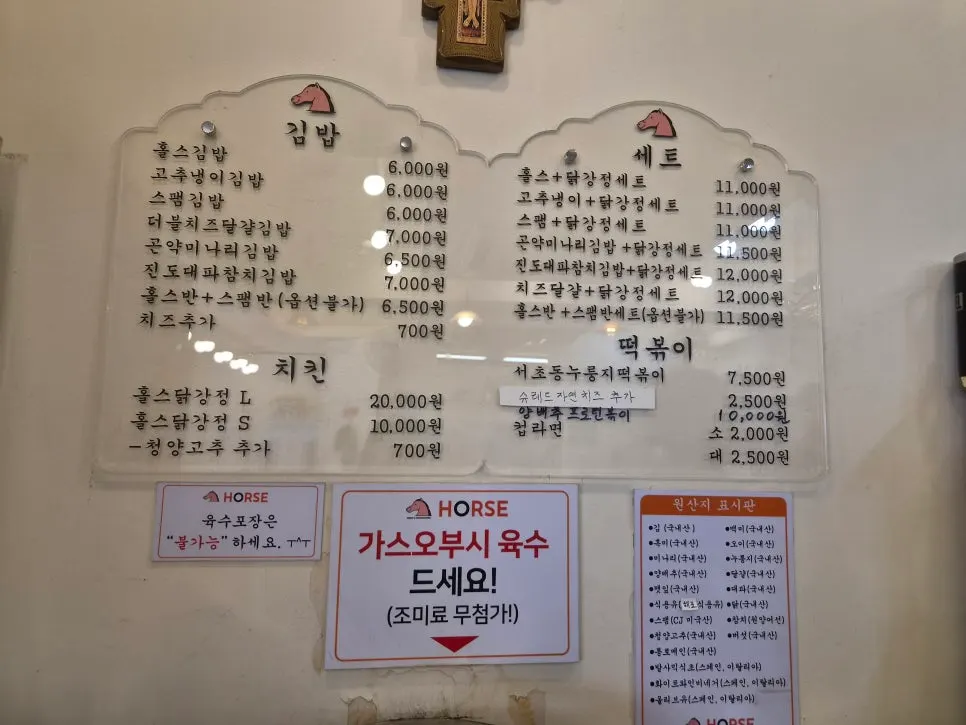 김밥
홀스김밥 6,000원
고추냉이김밥 6,000원
스팸김밥 6,000원
더블치즈달걀김밥 7,000원
곤약미나리김밥 6,500원
진도대파참치김밥 7,000원
홀스반+스팸반(옵션불가) 6,500원
치즈추가 700원
치킨
홀스닭강정 L 20,000원
홀스닭강정 S 10,000원
-청양고추 추가 700원
세트
홀스+닭강정세트 11,000원
고추냉이+닭강정세트 11,000원
스팸+닭강정세트 11,000원
곤약미나리김밥+닭강정세트 11,500원
진도대파참치김밥+닭강정세트 12,000원
치즈달걀+닭강정세트 12,000원
홀스반+스팸반세트(옵션불가) 11,500원
떡볶이
서초동누룽지떡볶이 7,500원
슈레드 자연치즈 추가 2,500원
양배추프로틴볶이 10,000원
컵라면 소 2,000원
대 2,500원
HORSE
육수포장은
"불가능" 하세요. ㅜ^ㅜ
HORSE
가스오부시 육수
드세요!
(조미료 무첨가!)
원산지 표시판
●김 (국내산) ●백미(국내산)
●흑미(국내산) ●오이(국내산)
●미나리(국내산) ●누룽지(국내산)
●양배추(국내산) ●달걀(국내산)
●깻잎(국내산) ●대파(국내산)
●식용유( 식용유) ●닭(국내산)
●스팸(CJ 미국산) ●참치(원양어선)
●청양고추(국내산) ●버섯(국내산)
●통로메인(국내산)
●발사믹식초(스페인, 이탈리아)
●화이트와인비네거(스페인, 이탈리아)
●올리브유(스페인, 이탈리아)
HORSE